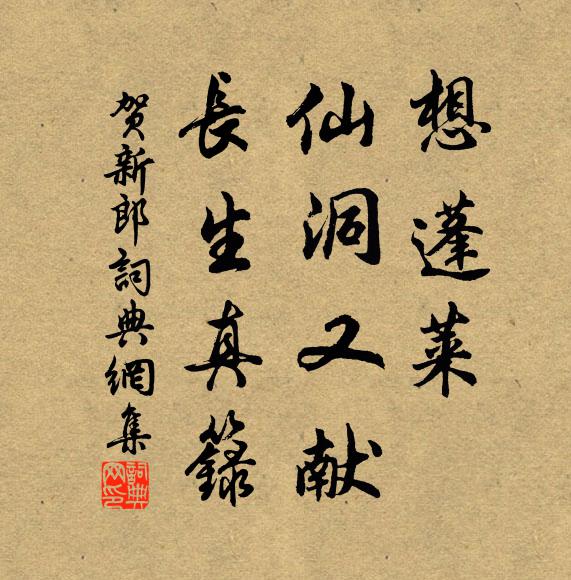 想蓬莱
仙洞又献
長生真籙
贺新郎詞典網集
詞典网印